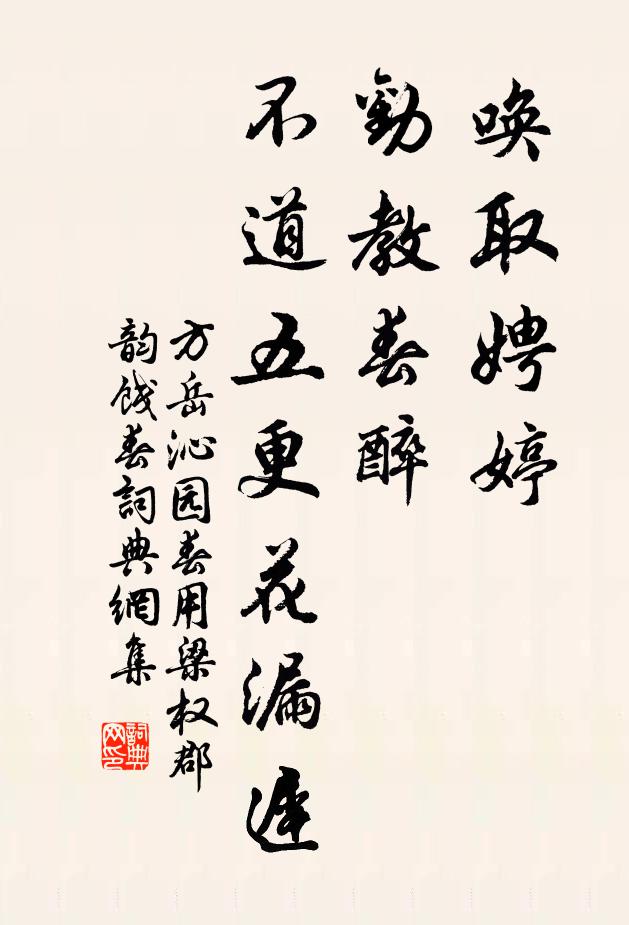 唤取娉婷
勸教春醉
不道五更花漏遲
方岳沁园春用梁权郡
韵饯春詞典網集
詞典網印